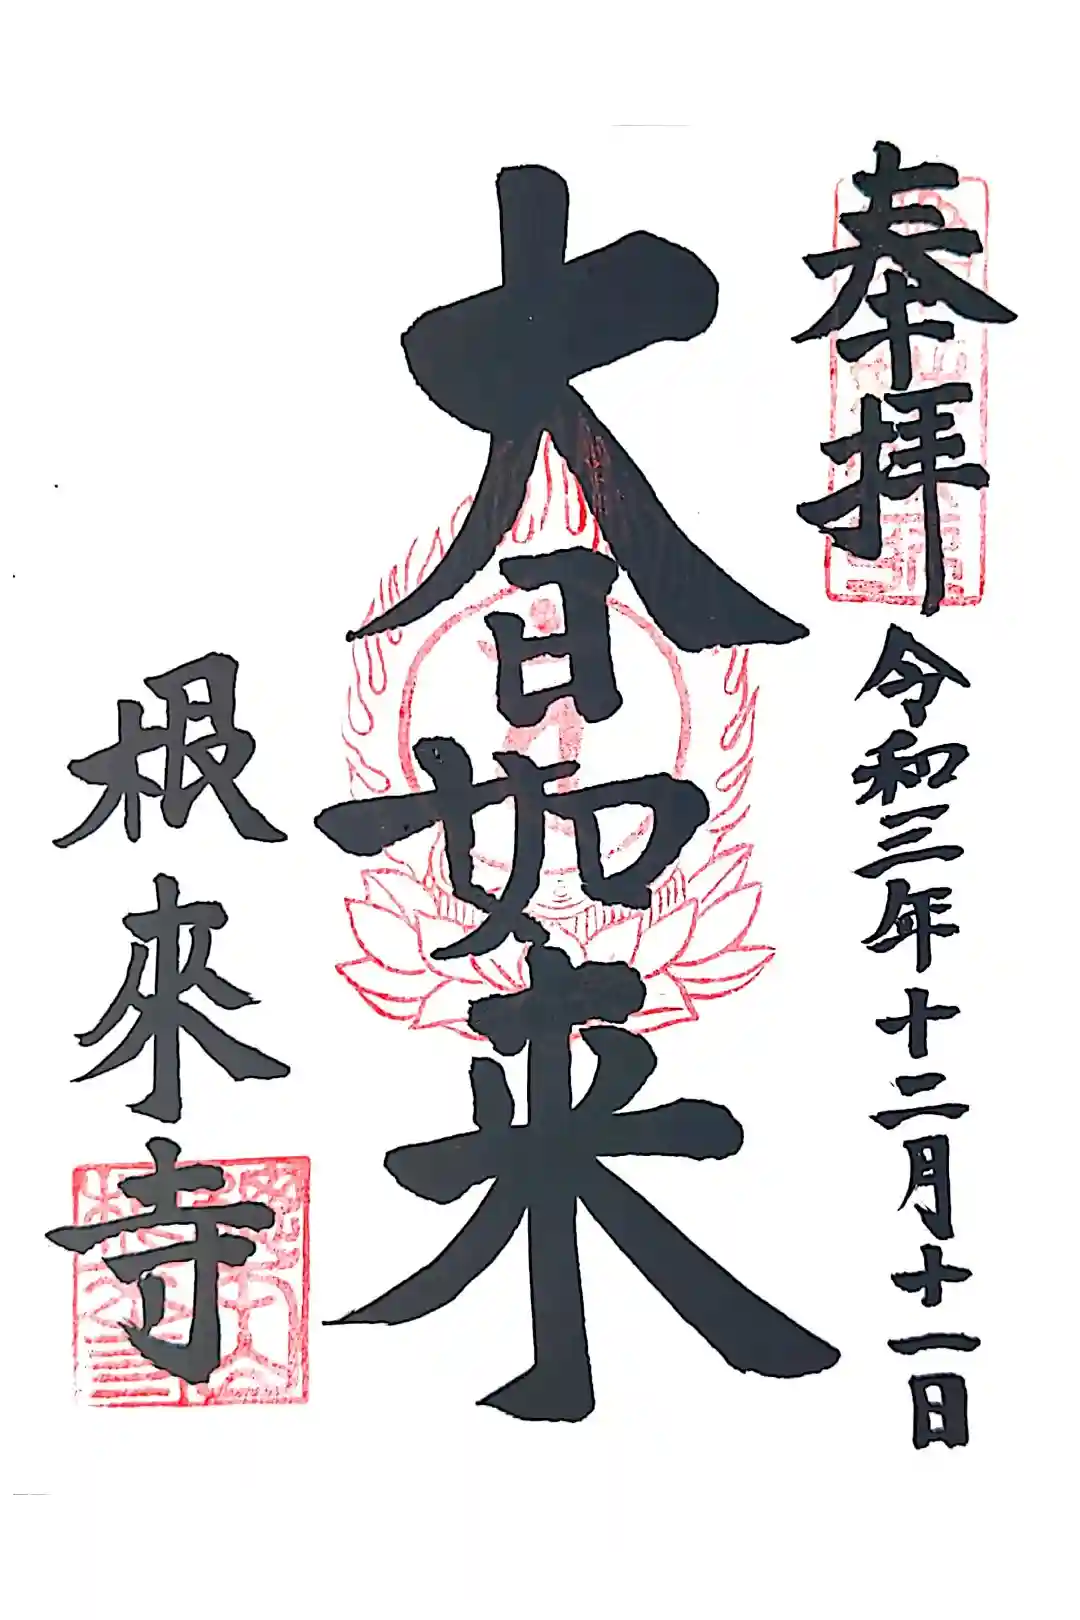 奉拝
令和三年十二月十一日
大日如来
根來寺